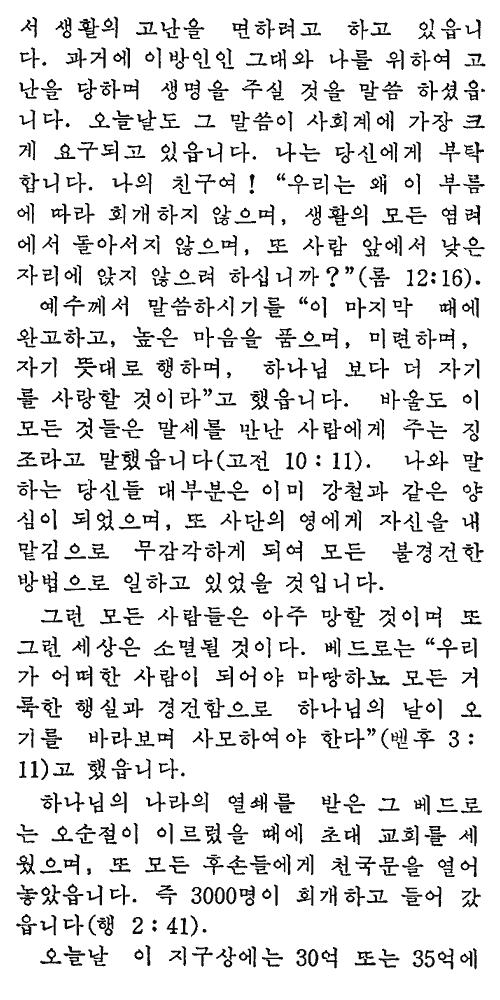 서 생활의 고난을 면하려고 하고 있읍니
다. 과거에 이방인인 그대와 나를 위하여 고
난을 당하며 생명을 주실 것을 말씀 하셨읍
니다. 오늘날도 그 말씀이 사회계에 가장 크
게 요구되고 있읍니다. 나는 당신에게 부탁
합니다. 나의 친구여! “우리는 왜 이 부름
에 따라 회개하지 않으며, 생활의 모든 염려
에서 돌아서지 않으며, 또 사람 앞에서 낮은
자리에 앉지 않으려 하십니까?”(롬 12:16).
예수께서 말씀하시기를 “이 마지막 때에
완고하고, 높은 마음을 품으며, 미련하며,
자기 뜻대로 행하며, 하나님 보다 더 자기
를 사랑할 것이라”고 했읍니다. 바울도 이
모든 것들은 말세를 만난 사람에게 주는 징
조라고 말했읍니다(고전 10:11). 나와 말
하는 당신들 대부분은 이미 강철과 같은 양
심이 되었으며, 또 사단의 영에게 자신을 내
맡김으로 무감각하게 되여 모든 불경건한
방법으로 일하고 있었을 것입니다.
그런 모든 사람들은 아주 망할 것이며 또
그런 세상은 소멸될 것이다. 베드로는 “우리
가 어떠한 사람이 되어야 마땅하뇨 모든 거
룩한 행실과 경건함으로 하나님의 날이 오
기를 바라보며 사모하여야 한다”(벧후 3:
11)고 했읍니다.
하나님의 나라의 열쇄를 받은 그 베드로
는 오순절이 이르렀을 때에 초대 교회를 세
웠으며, 또 모든 후손들에게 천국문을 열어
놓았읍니다. 즉 3000명이 회개하고 들어 갔
읍니다(행 2:41).
오늘날 이 지구상에는 30억 또는 35억에